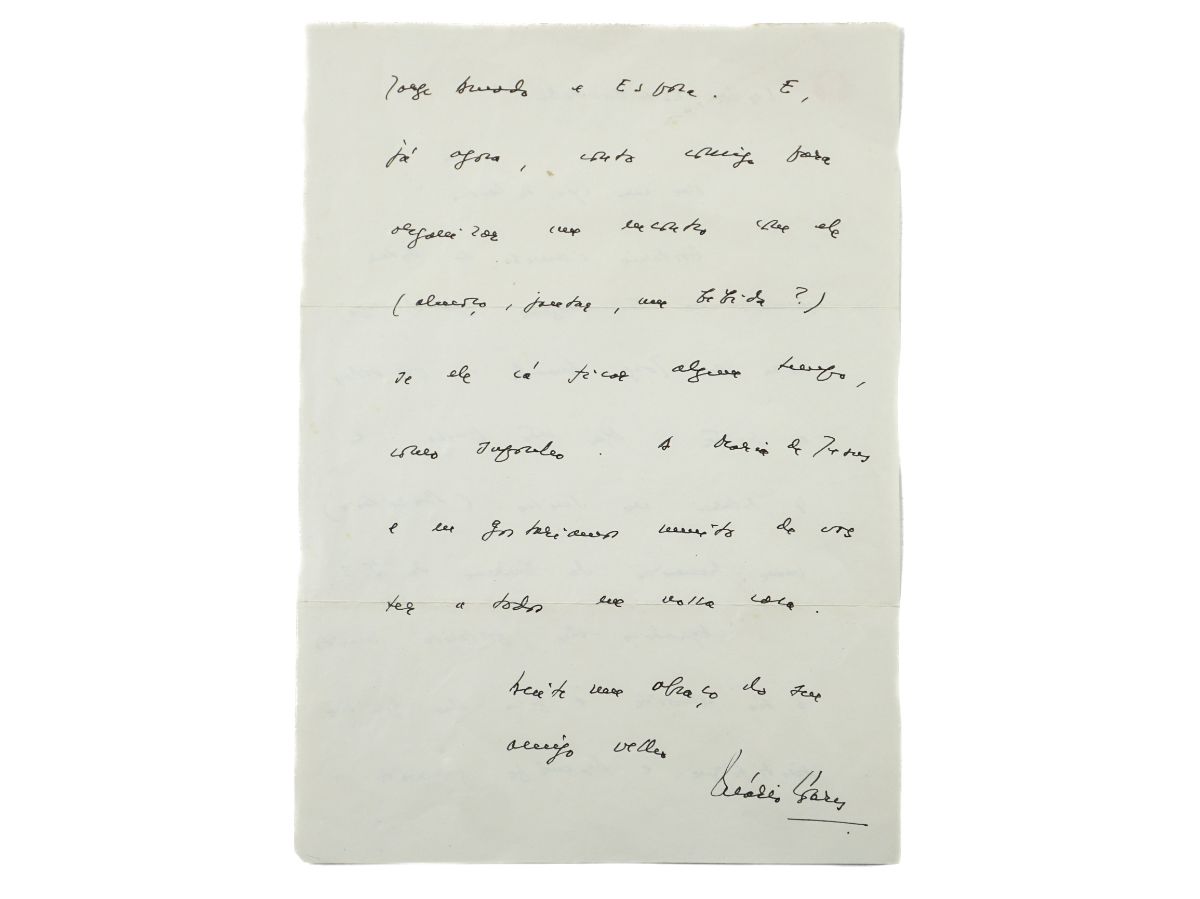 Jorge Amado e Esposa. E,
já agora, conte comigo para
organizar um encontro com ele
(almoço, jantar, uma bebida?)
se ele cá ficar algum tempo,
como suponho. A Maria de Jesus
e eu gostaríamos muito de vos
ter a todos em nossa casa.
Aceite um abraço do seu
amigo velho
Mário Soares